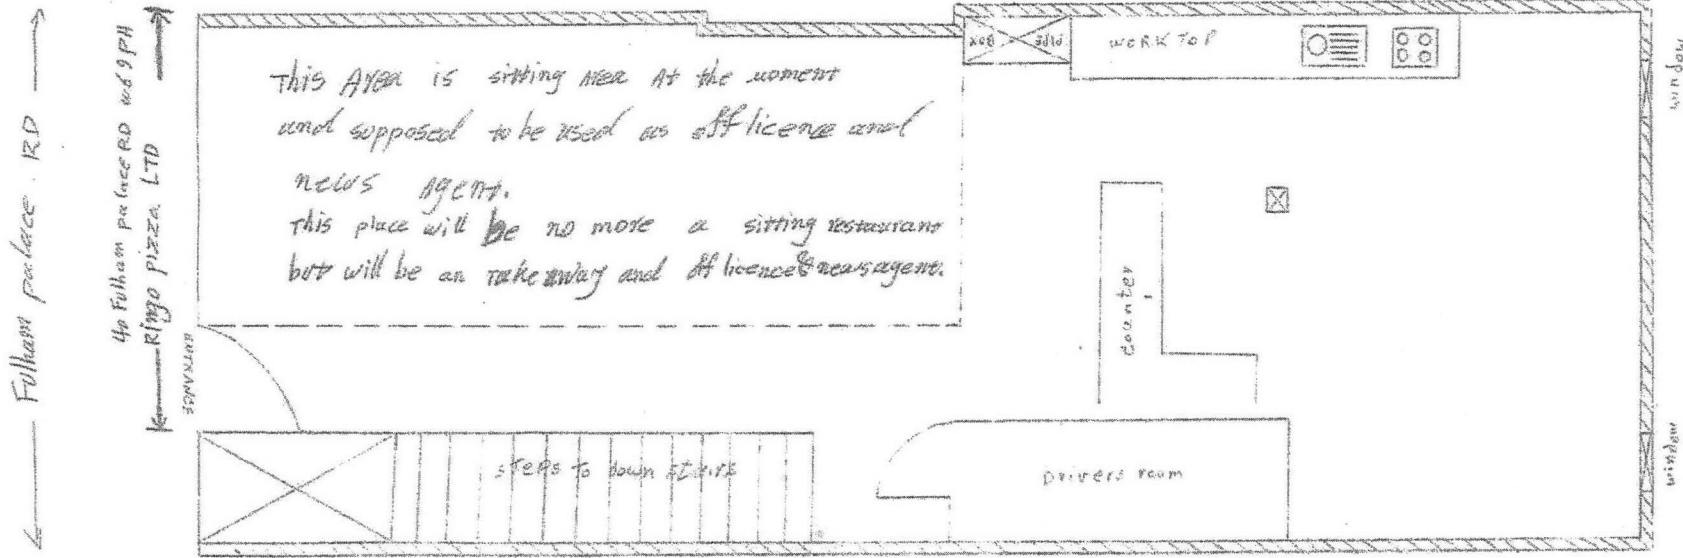 Fulham palace. RD
40 Fulham palace RD w6 9PH
Ringo pizza LTD
ENTRANCE
This Area is sitting Area At the moment
and supposed to be used as off licence and
news Agent.
This place will be no more a sitting restaurant
but will be an take away and off licence & newsagent.
PIPE BOX
WORK TOP
window
counter
steps to down stairs
Drivers room
window